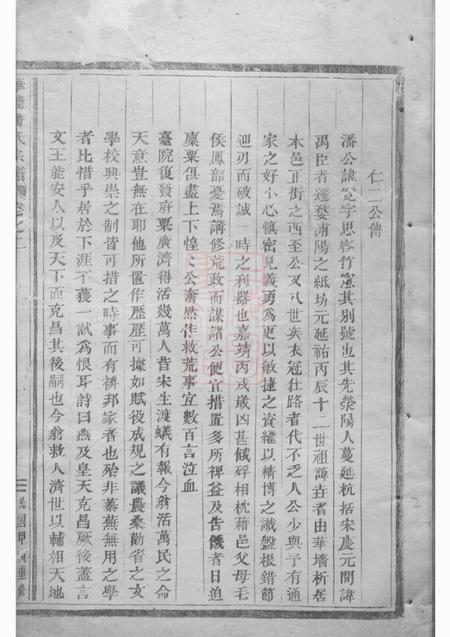 仁二公傳
潘公諱寬字思容竹窻其別號也其先滎陽人蔓延杭括宋慶元間諱
禹臣者遷婺浦陽之紙坊元延祐丙辰十二世祖諱垚者由華墻析居
本邑正街之西至公又八世矣衣冠仕路者代不乏人公少與予有通
家之好小心慎密見義勇爲更以敏捷之資繼以精博之識盤根錯節
迎刃而破誠一時之利器也嘉靖丙戌歲凶甚餓殍相枕藉邑父母毛
侯鳳韶憂焉講修荒政而謀諸公便宜措置多所裨益及告饑者日迫
廩粟俱盡上下惶惶公奮然作救荒事宜數百言泣血
臺院復發府粟廣濟得活幾萬人昔宋生渡蟻有報今翁活萬民之命
天意豈無在耶他所置作歷歷可據如賦役成規之議農桑勸省之文
學校興崇之制皆可措之時事而有補邦家者也殆非蓁蕪無用之學
者比惜乎居於下涯不獲一試爲恨耳詩曰燕及皇天克昌厥後蓋言
文王能安人以及天下而克昌其後嗣也今翁救人濟世以輔相天地
氏宗譜
卷之
民國甲
重修